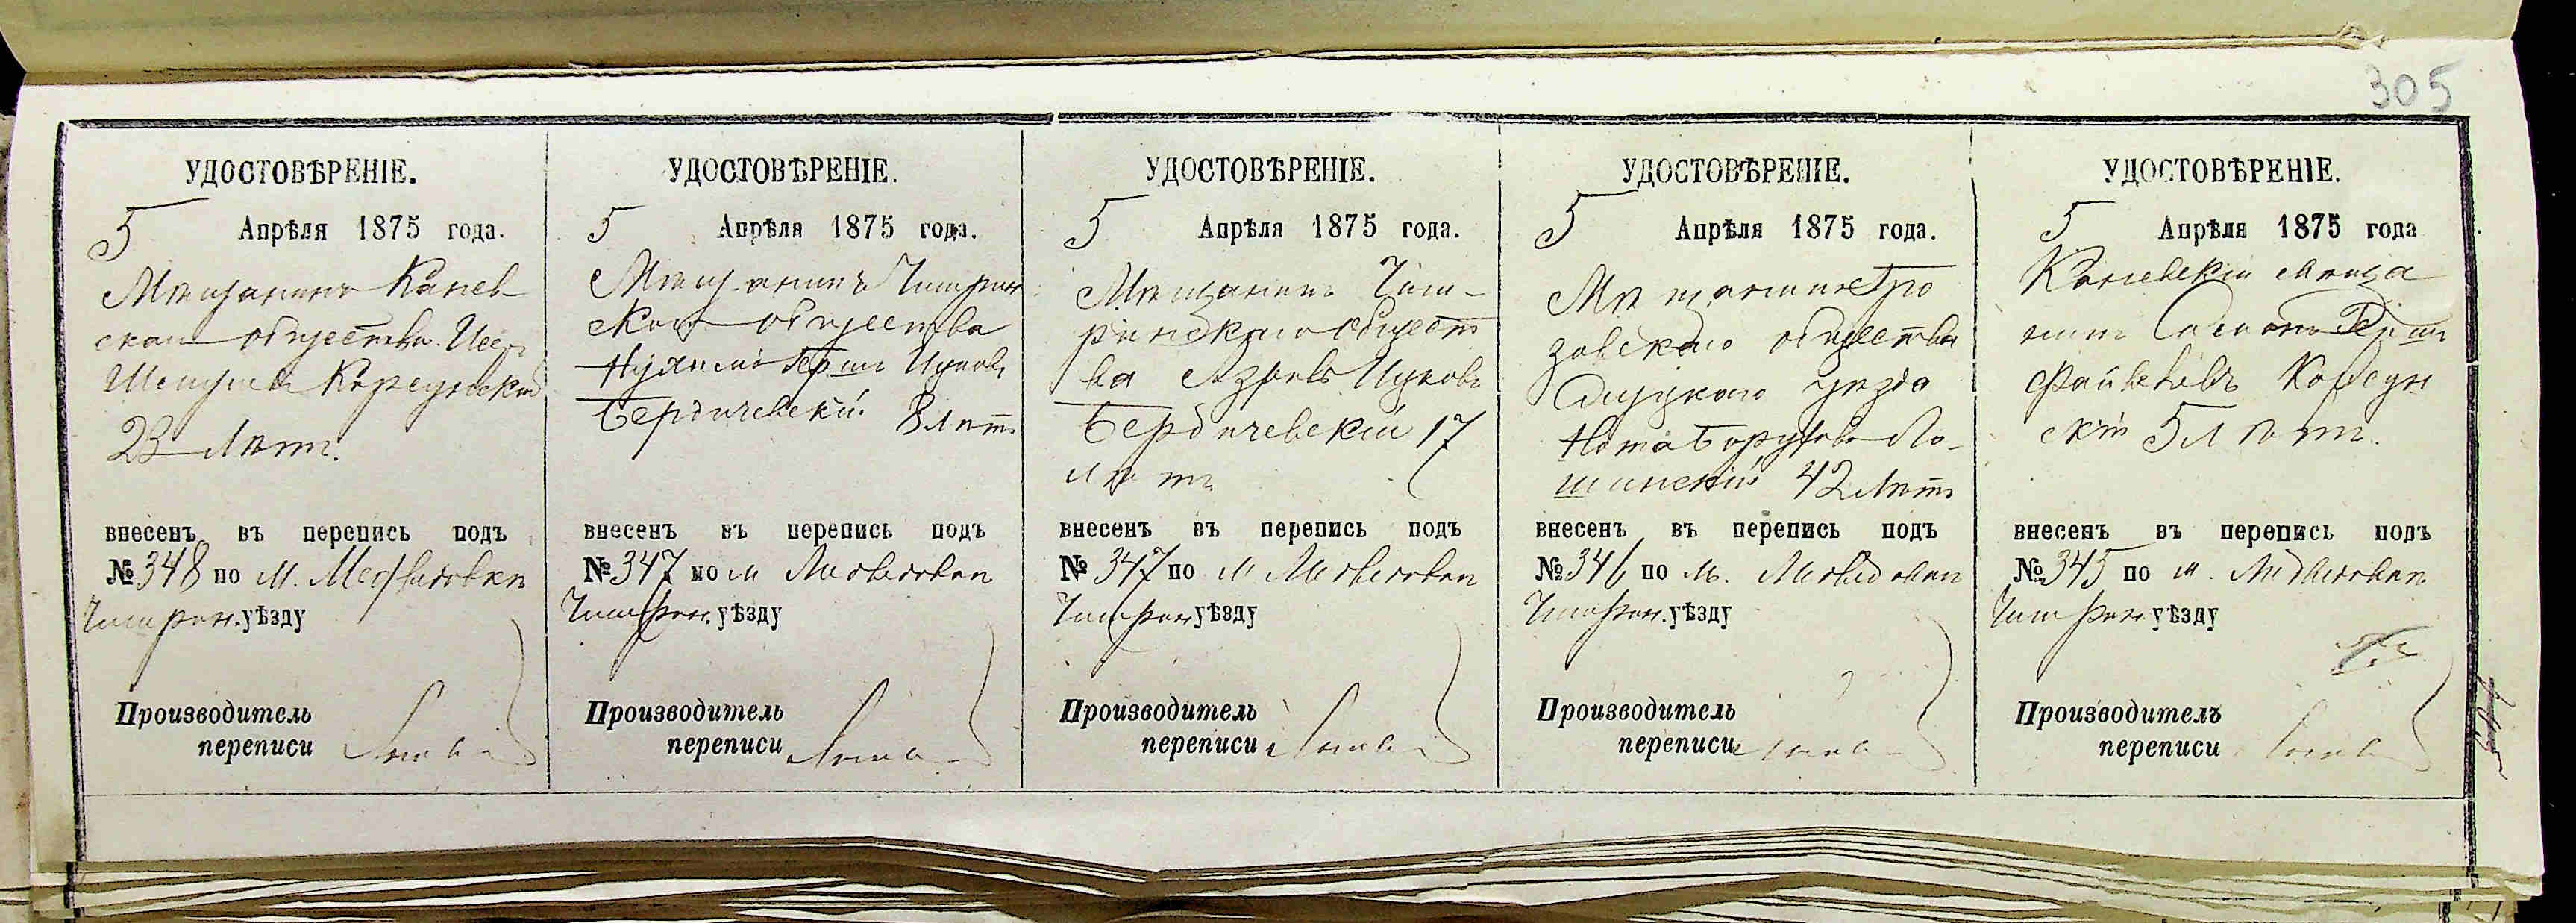 305
УДОСТОВѢРЕНІЕ.
5 Апрѣля 1875 года.
Мѣщанинъ Канев-
скаго общества
Корсунскій
23 лѣтъ.
внесенъ въ перепись подъ
№ 348 по м. Медвѣдовкѣ
Чигрин. уѣзду
Производитель
переписи
УДОСТОВѢРЕНІЕ.
5 Апрѣля 1875 года.
Мѣщанинъ Чигрин
скаго общества
Нухимъ Герш Ицковъ
Бердичевскій. 8 лѣтъ
внесенъ въ перепись подъ
№ 347 по м Медвѣдовкѣ
Чигрин. уѣзду
Производитель
переписи
УДОСТОВѢРЕНІЕ.
5 Апрѣля 1875 года.
Мѣщанинъ Чиги-
ринскаго общест
ва Азріель Ицковъ
Бердичевскій 17
лѣтъ
внесенъ въ перепись подъ
№ 347 по м Медвѣдовкѣ
Чигрин уѣзду
Производитель
переписи
УДОСТОВѢРЕНІЕ.
5 Апрѣля 1875 года.
Мѣщанинъ Гро
зовскаго общества
Слуцкаго уѣзда
Нота Боруховъ Ло-
шинскій 42 лѣтъ
внесенъ въ перепись подъ
№ 346 по м. Медвѣдовкѣ
Чигрин. уѣзду
Производитель
переписи
УДОСТОВѢРЕНІЕ.
5 Апрѣля 1875 года
Каневскій мѣща
нинъ Герш
Файвелевъ Корсун
скій 5 лѣтъ.
внесенъ въ перепись подъ
№ 345 по м. Медвѣдовкѣ
Чигрин. уѣзду
Производитель
переписи